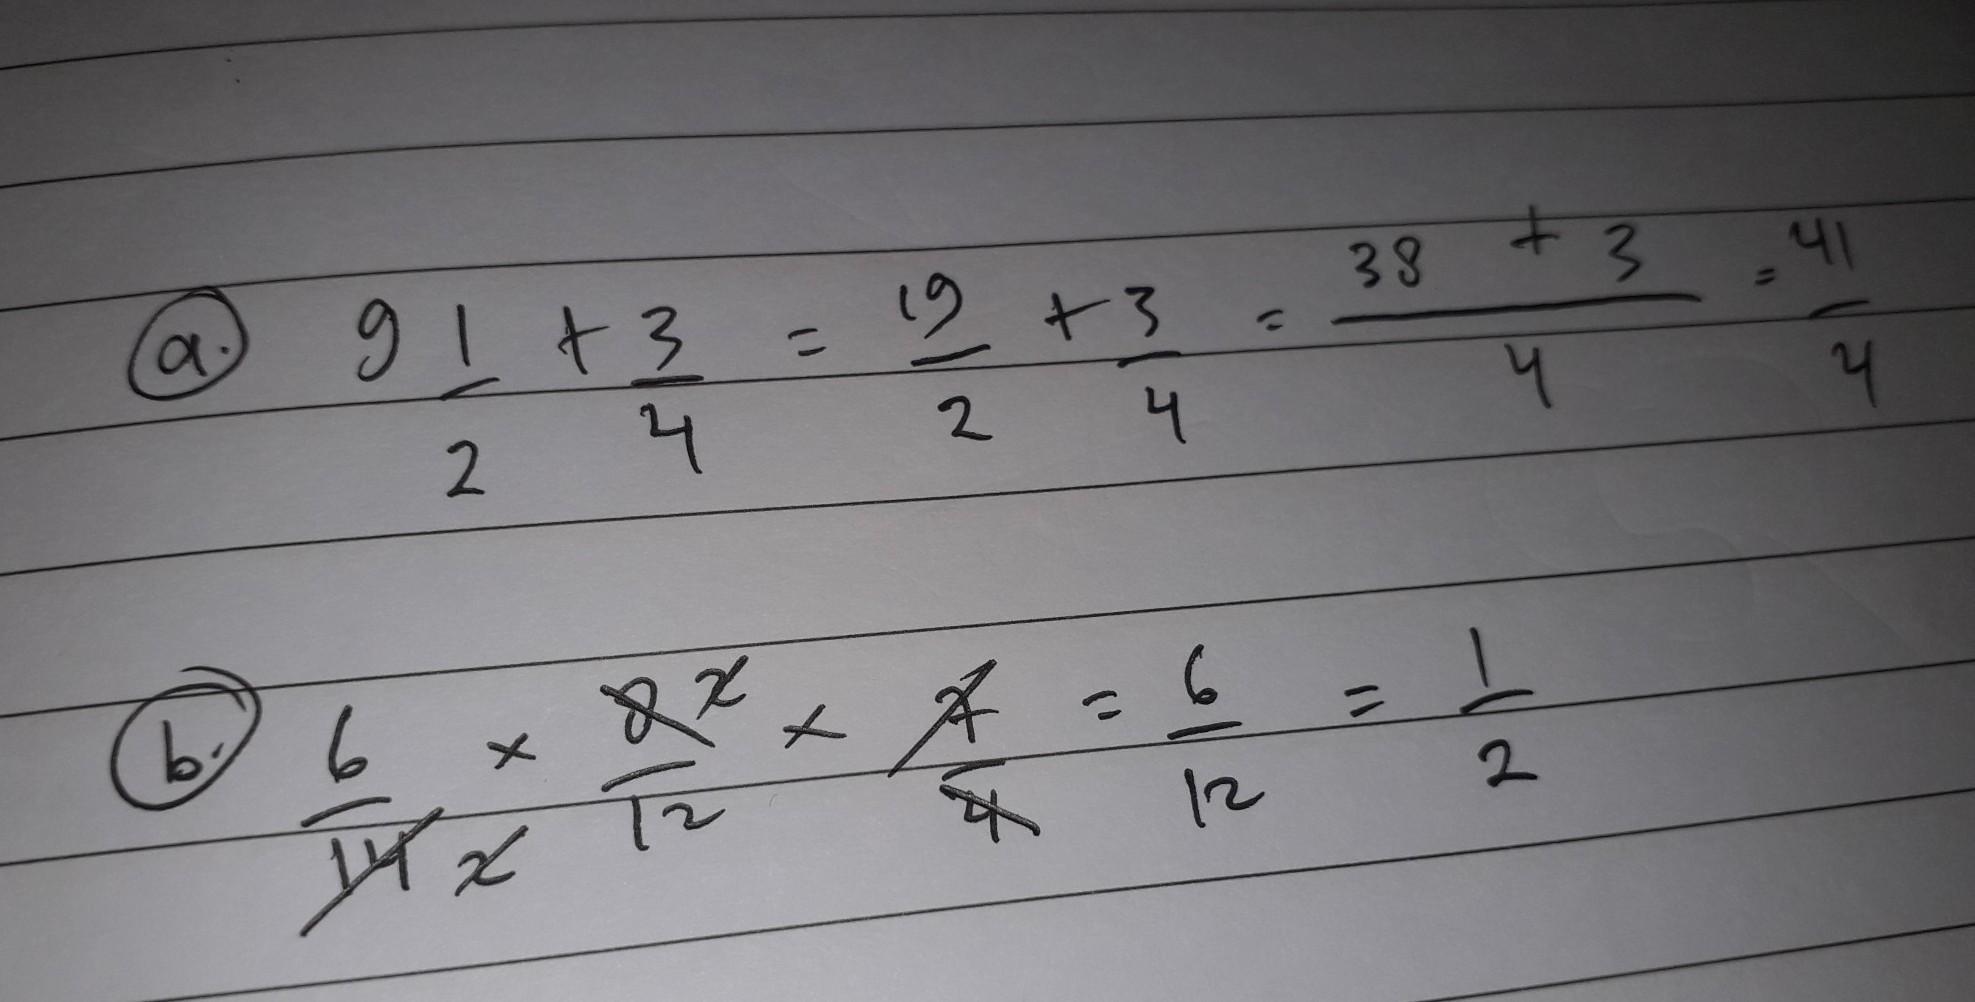 a. 9 1/2 + 3/4 = 19/2 + 3/4 = 38 + 3/4 = 41/4
b. 6/14 2 × 8 2/12 × 7/4 = 6/12 = 1/2